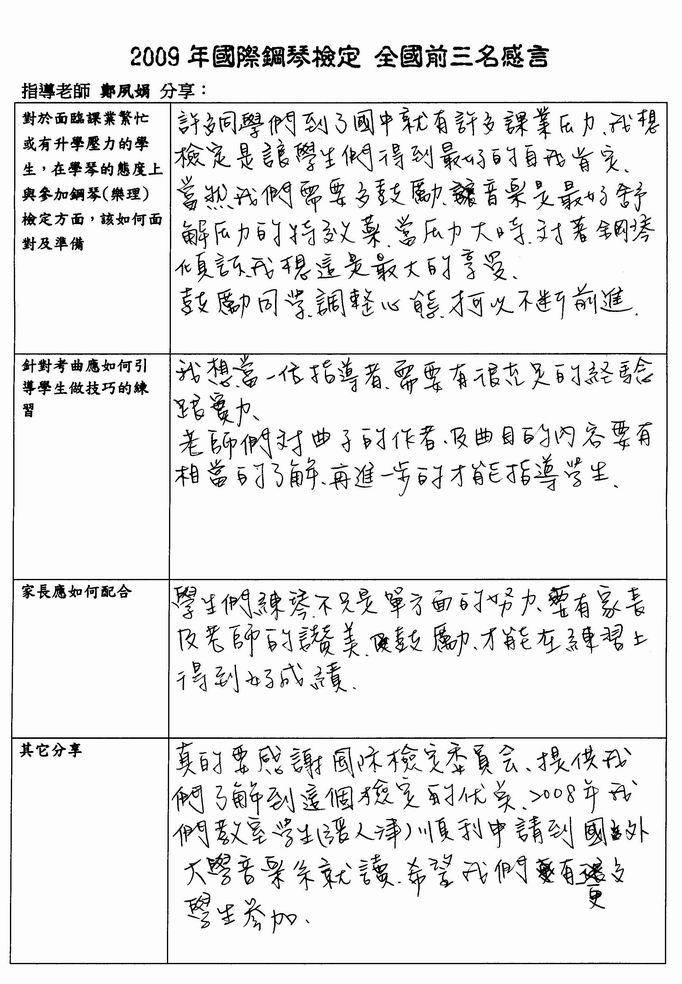 2009 年國際鋼琴檢定 全國前三名感言
指導老師 鄭夙娟 分享：
對於面臨課業繁忙
或有升學壓力的學
生，在學琴的態度上
與參加鋼琴(樂理)
檢定方面，該如何面
對及準備
許多同學們到了國中就有許多課業压力、我想
檢定是讓學生們得到最好的自我肯定、
當然我們需要多鼓勵、讓音楽是最好舒
解压力的特效薬、當压力大時、对著鋼琴
傾訴、我想這是最大的享受、
鼓勵同学、調整心態、才可以不断前進、
針對考曲應如何引
導學生做技巧的練
習
我想當一位指導者、需要有很充足的経験
跟實力、
老師們对曲子的作者、及曲目的內容要有
相當的了解、再進一步的才能指導學生、
家長應如何配合
學生們練琴、不只是單方面的努力、要有家長
及老師的讃美、及鼓勵、才能在練習上
得到好成績、
其它分享
真的要感謝国际檢定委員会、提供我
們了解到這個檢定的优美、2008年我
們教室學生()順利申請到國外
大學音楽系就讀、希望我們有更多
學生参加、